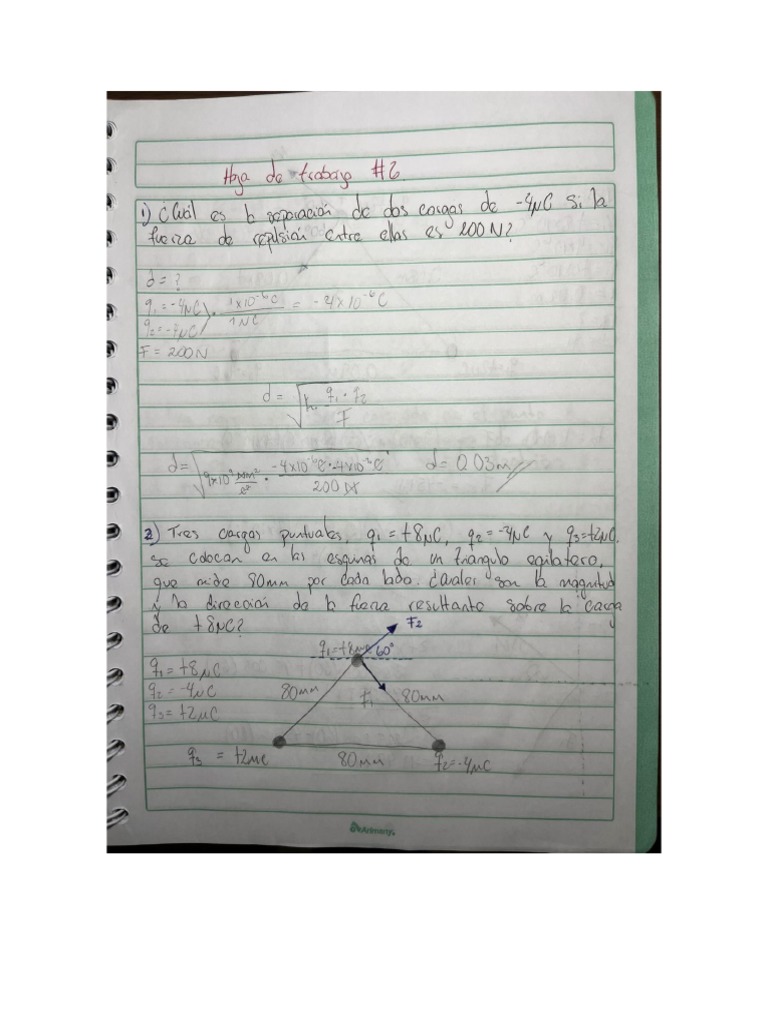 Hoja de trabajo #2
1) ¿Cuál es la separación de dos cargas de -4μC si la
fuerza de repulsión entre ellas es 200N?
d = ?
q₁ = -4μC ) · 1x10⁻⁶C / 1μC = -4x10⁻⁶C
q₂ = -4μC
F = 200N
d = √(k · q₁ · q₂ / F)
d = √(9x10⁹ Nm²/C² · -4x10⁻⁶C · -4x10⁻⁶C / 200N) d = 0.03m
2) Tres cargas puntuales, q₁ = +8μC, q₂ = -4μC y q₃ = +2μC.
se colocan en las esquinas de un triángulo equilatero,
que mide 80mm por cada lado. ¿Cuáles son la magnitud
y la dirección de la fuerza resultante sobre la carga
de +8μC?
F₂
q₁ = +8μC 60°
q₁ = +8μC
q₂ = -4μC
q₃ = +2μC
80mm F₁ 80mm
q₃ = +2μC 80mm q₂ = -4μC